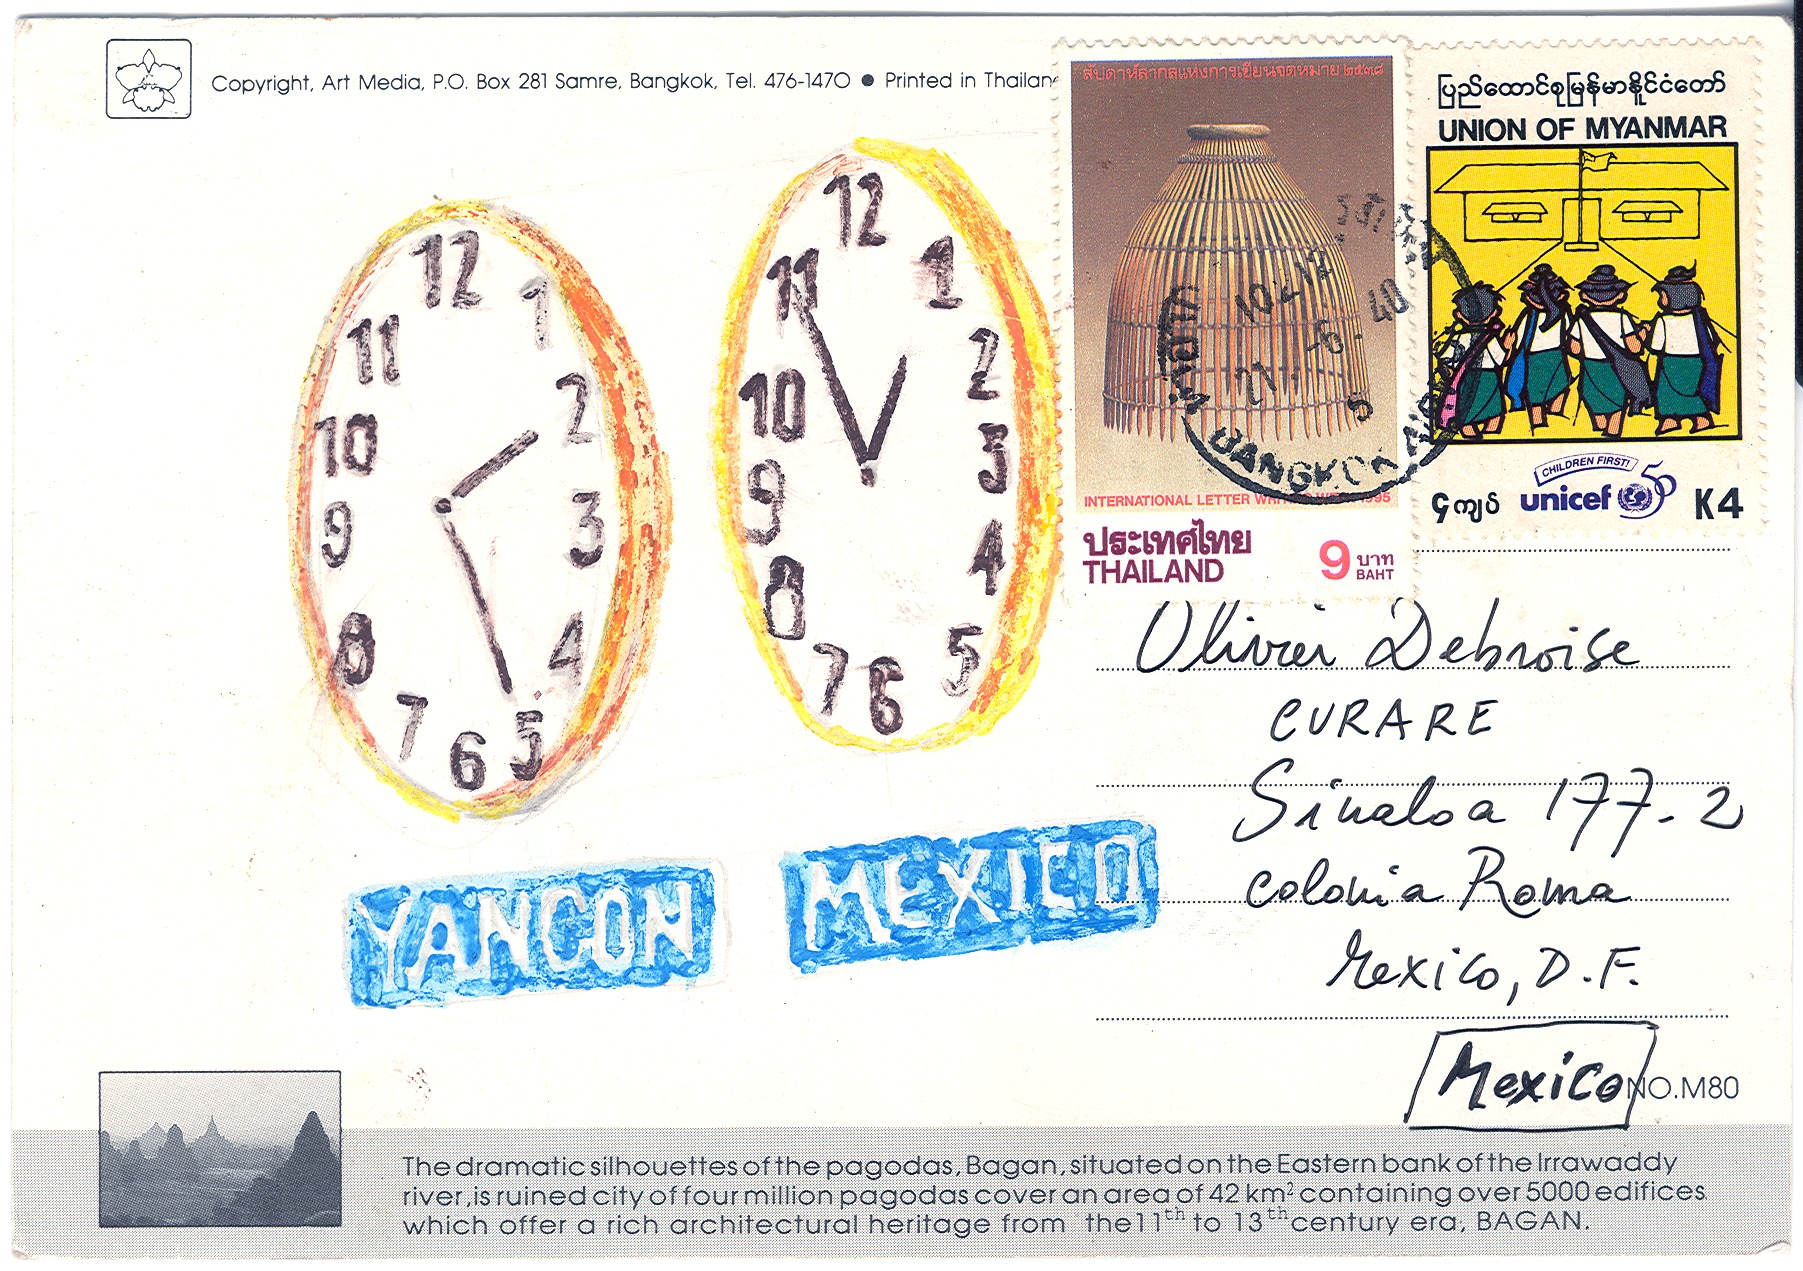 Copyright, Art Media, P.O. Box 281 Samre, Bangkok, Tel. 476-1470 ● Printed in Thailan
สัปดาห์สากลแห่งการเขียนจดหมาย ๒๕๓๘
INTERNATIONAL LETTER 1995
ประเทศไทย
THAILAND
9 บาท
BAHT
ပြည်ထောင်စုမြန်မာနိုင်ငံတော်
UNION OF MYANMAR
CHILDREN FIRST!
unicef 50
၄ကျပ်
K4
BANGKOK
12
1
2
3
4
5
6
7
8
9
10
11
12
1
2
3
4
5
6
7
8
9
10
11
YANGON
MEXICO
Olivier Debroise
CURARE
Sinaloa 177-2
Colonia Roma
Mexico, D.F.
Mexico
NO.M80
The dramatic silhouettes of the pagodas, Bagan, situated on the Eastern bank of the Irrawaddy
river, is ruined city of four million pagodas cover an area of 42 km² containing over 5000 edifices
which offer a rich architectural heritage from the 11th to 13th century era, BAGAN.